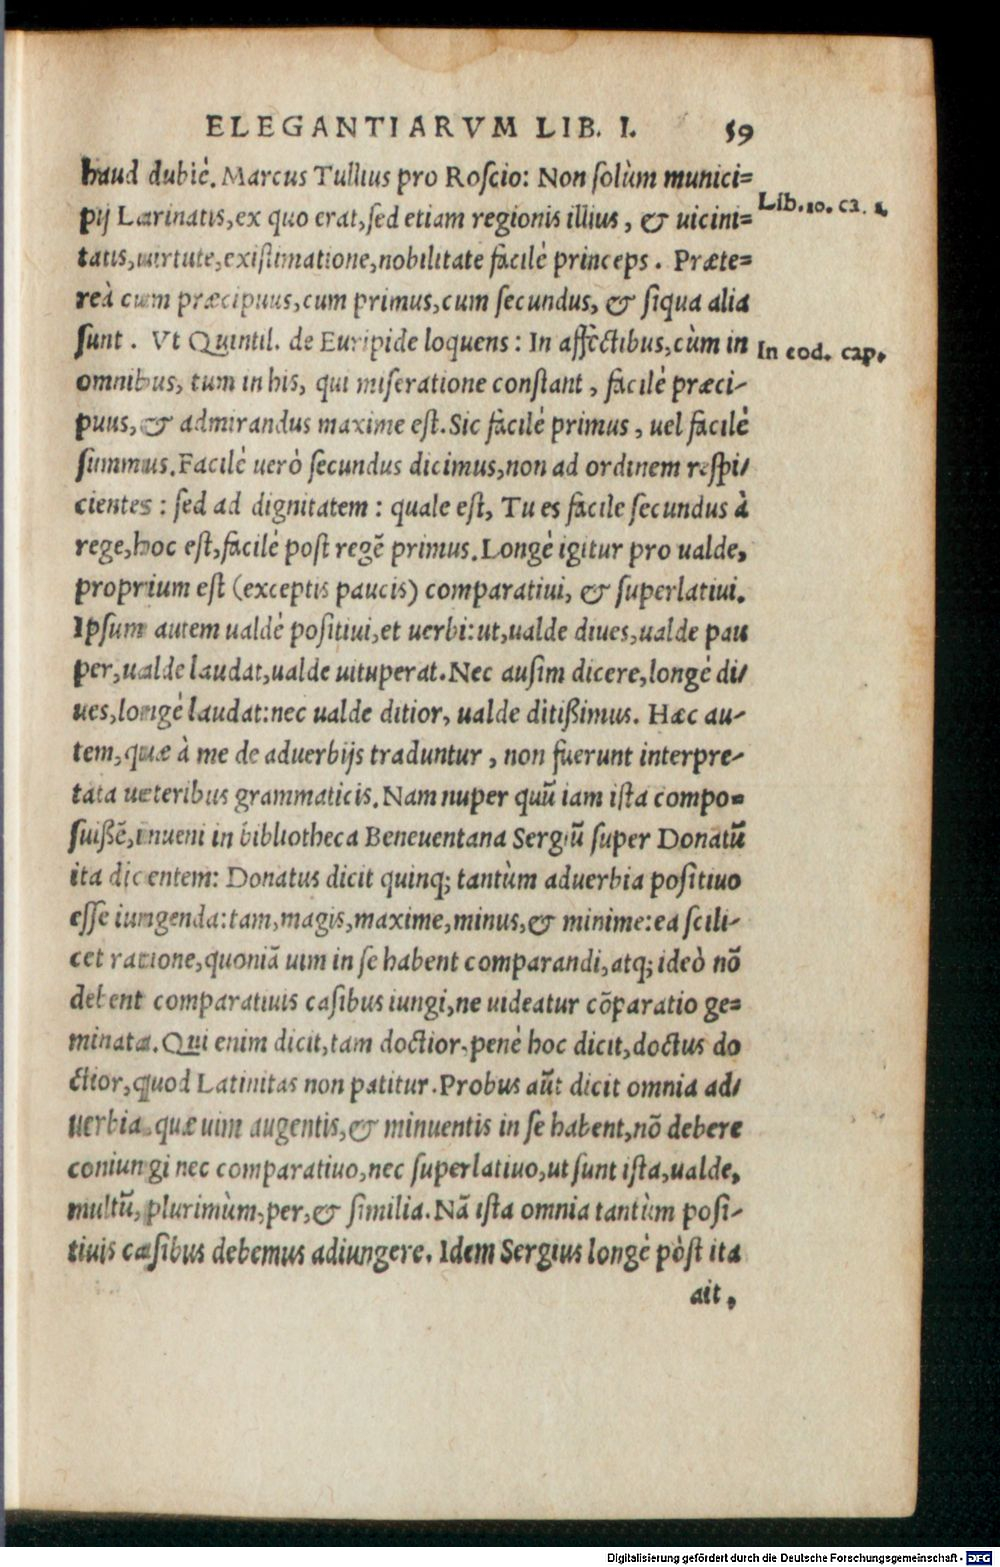 ELEGANTIARVM LIB. I. 59
haud dubiè. Marcus Tullius pro Roscio: Non solùm munici=
pij Larinatis, ex quo erat, sed etiam regionis illius, & uicini=
Lib. 10. ca. 1.
tatis, uirtute, existimatione, nobilitate facilè princeps. Præte=
reà cum præcipuus, cum primus, cum secundus, & siqua alia
sunt. Vt Quintil. de Euripide loquens: In affectibus, cùm in
In eod. cap.
omnibus, tum in his, qui miseratione constant, facilè præci-
puus, & admirandus maxime est. Sic facilè primus, uel facilè
summus. Facilè uerò secundus dicimus, non ad ordinem respi-
cientes: sed ad dignitatem: quale est, Tu es facile secundus à
rege, hoc est, facilè post regē primus. Longè igitur pro ualde,
proprium est (exceptis paucis) comparatiui, & superlatiui.
Ipsum autem ualdè positiui, et uerbi: ut, ualde diues, ualde pau
per, ualde laudat, ualde uituperat. Nec ausim dicere, longè di-
ues, longè laudat: nec ualde ditior, ualde ditißimus. Hæc au-
tem, quæ à me de aduerbijs traduntur, non fuerunt interpre-
tata ueteribus grammaticis. Nam nuper quū iam ista compo=
suißē, inueni in bibliotheca Beneuentana Sergiū super Donatū
ita dicentem: Donatus dicit quinq; tantùm aduerbia positiuo
esse iungenda: tam, magis, maxime, minus, & minime: ea scili-
cet ratione, quoniā uim in se habent comparandi, atq; ideò nō
debent comparatiuis casibus iungi, ne uideatur cōparatio ge=
minata. Qui enim dicit, tam doctior, penè hoc dicit, doctus do
ctior, quod Latinitas non patitur. Probus aūt dicit omnia ad-
uerbia, quæ uim augentis, & minuentis in se habent, nō debere
coniungi nec comparatiuo, nec superlatiuo, ut sunt ista, ualde,
multū, plurimùm, per, & similia. Nā ista omnia tantùm posi-
tiuis casibus debemus adiungere. Idem Sergius longè pòst ita
ait,
Digitalisierung gefördert durch die Deutsche Forschungsgemeinschaft - DFG